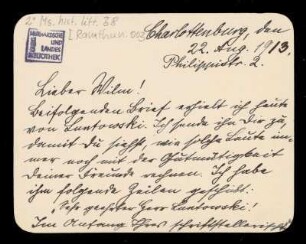 2° Ms. hist. litt. 38
MURHARDSCHE
UND
LANDES
BIBLIOTHEK
Charlottenburg, den
22. Aug. 1913.
Philippistr. 2.
Lieber Wilm!
Beifolgenden Brief erhielt ich heute
von Lustowski. Ich sende ihn Dir zu,
damit Du siehst, wie solche Leute im-
mer noch mit der Gutmütigkeit
Deiner Freunde rechnen. Ich habe
ihm folgende Zeilen geschickt:
"Sehr geehrter Herr Lustowski!
Im Anfang Ihres schriftstelleri-